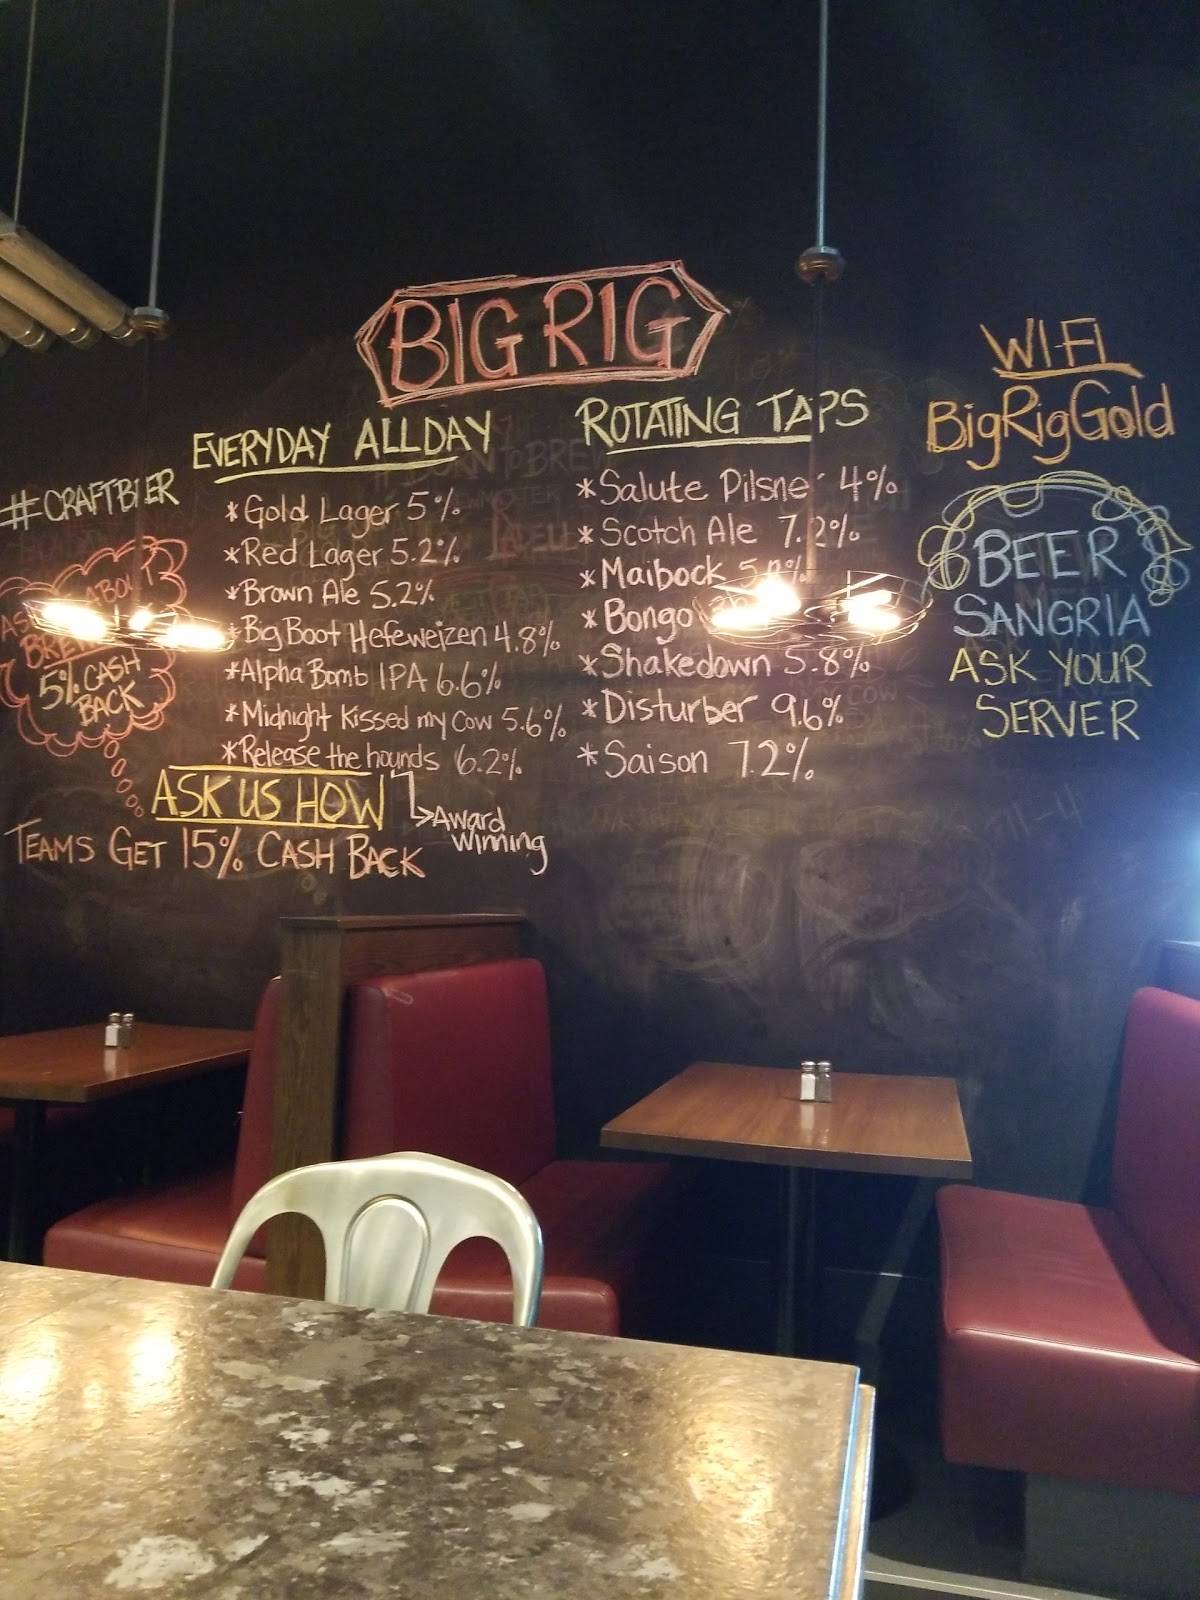 BIG RIG
#CRAFTBEER
5% CASH
BACK
EVERYDAY ALLDAY
*Gold Lager 5%
*Red Lager 5.2%
*Brown Ale 5.2%
*Big Boot Hefeweizen 4.8%
*Alpha Bomb IPA 6.6%
*Midnight Kissed my Cow 5.6%
*Release the hounds 6.2%
Award
Winning
ASK US HOW
TEAMS GET 15% CASH BACK
ROTATING TAPS
*Salute Pilsner 4%
*Scotch Ale 7.2%
*Maibock
*Bongo
*Shakedown 5.8%
*Disturber 9.6%
*Saison 7.2%
WIFI
BigRigGold
BEER
SANGRIA
ASK YOUR
SERVER